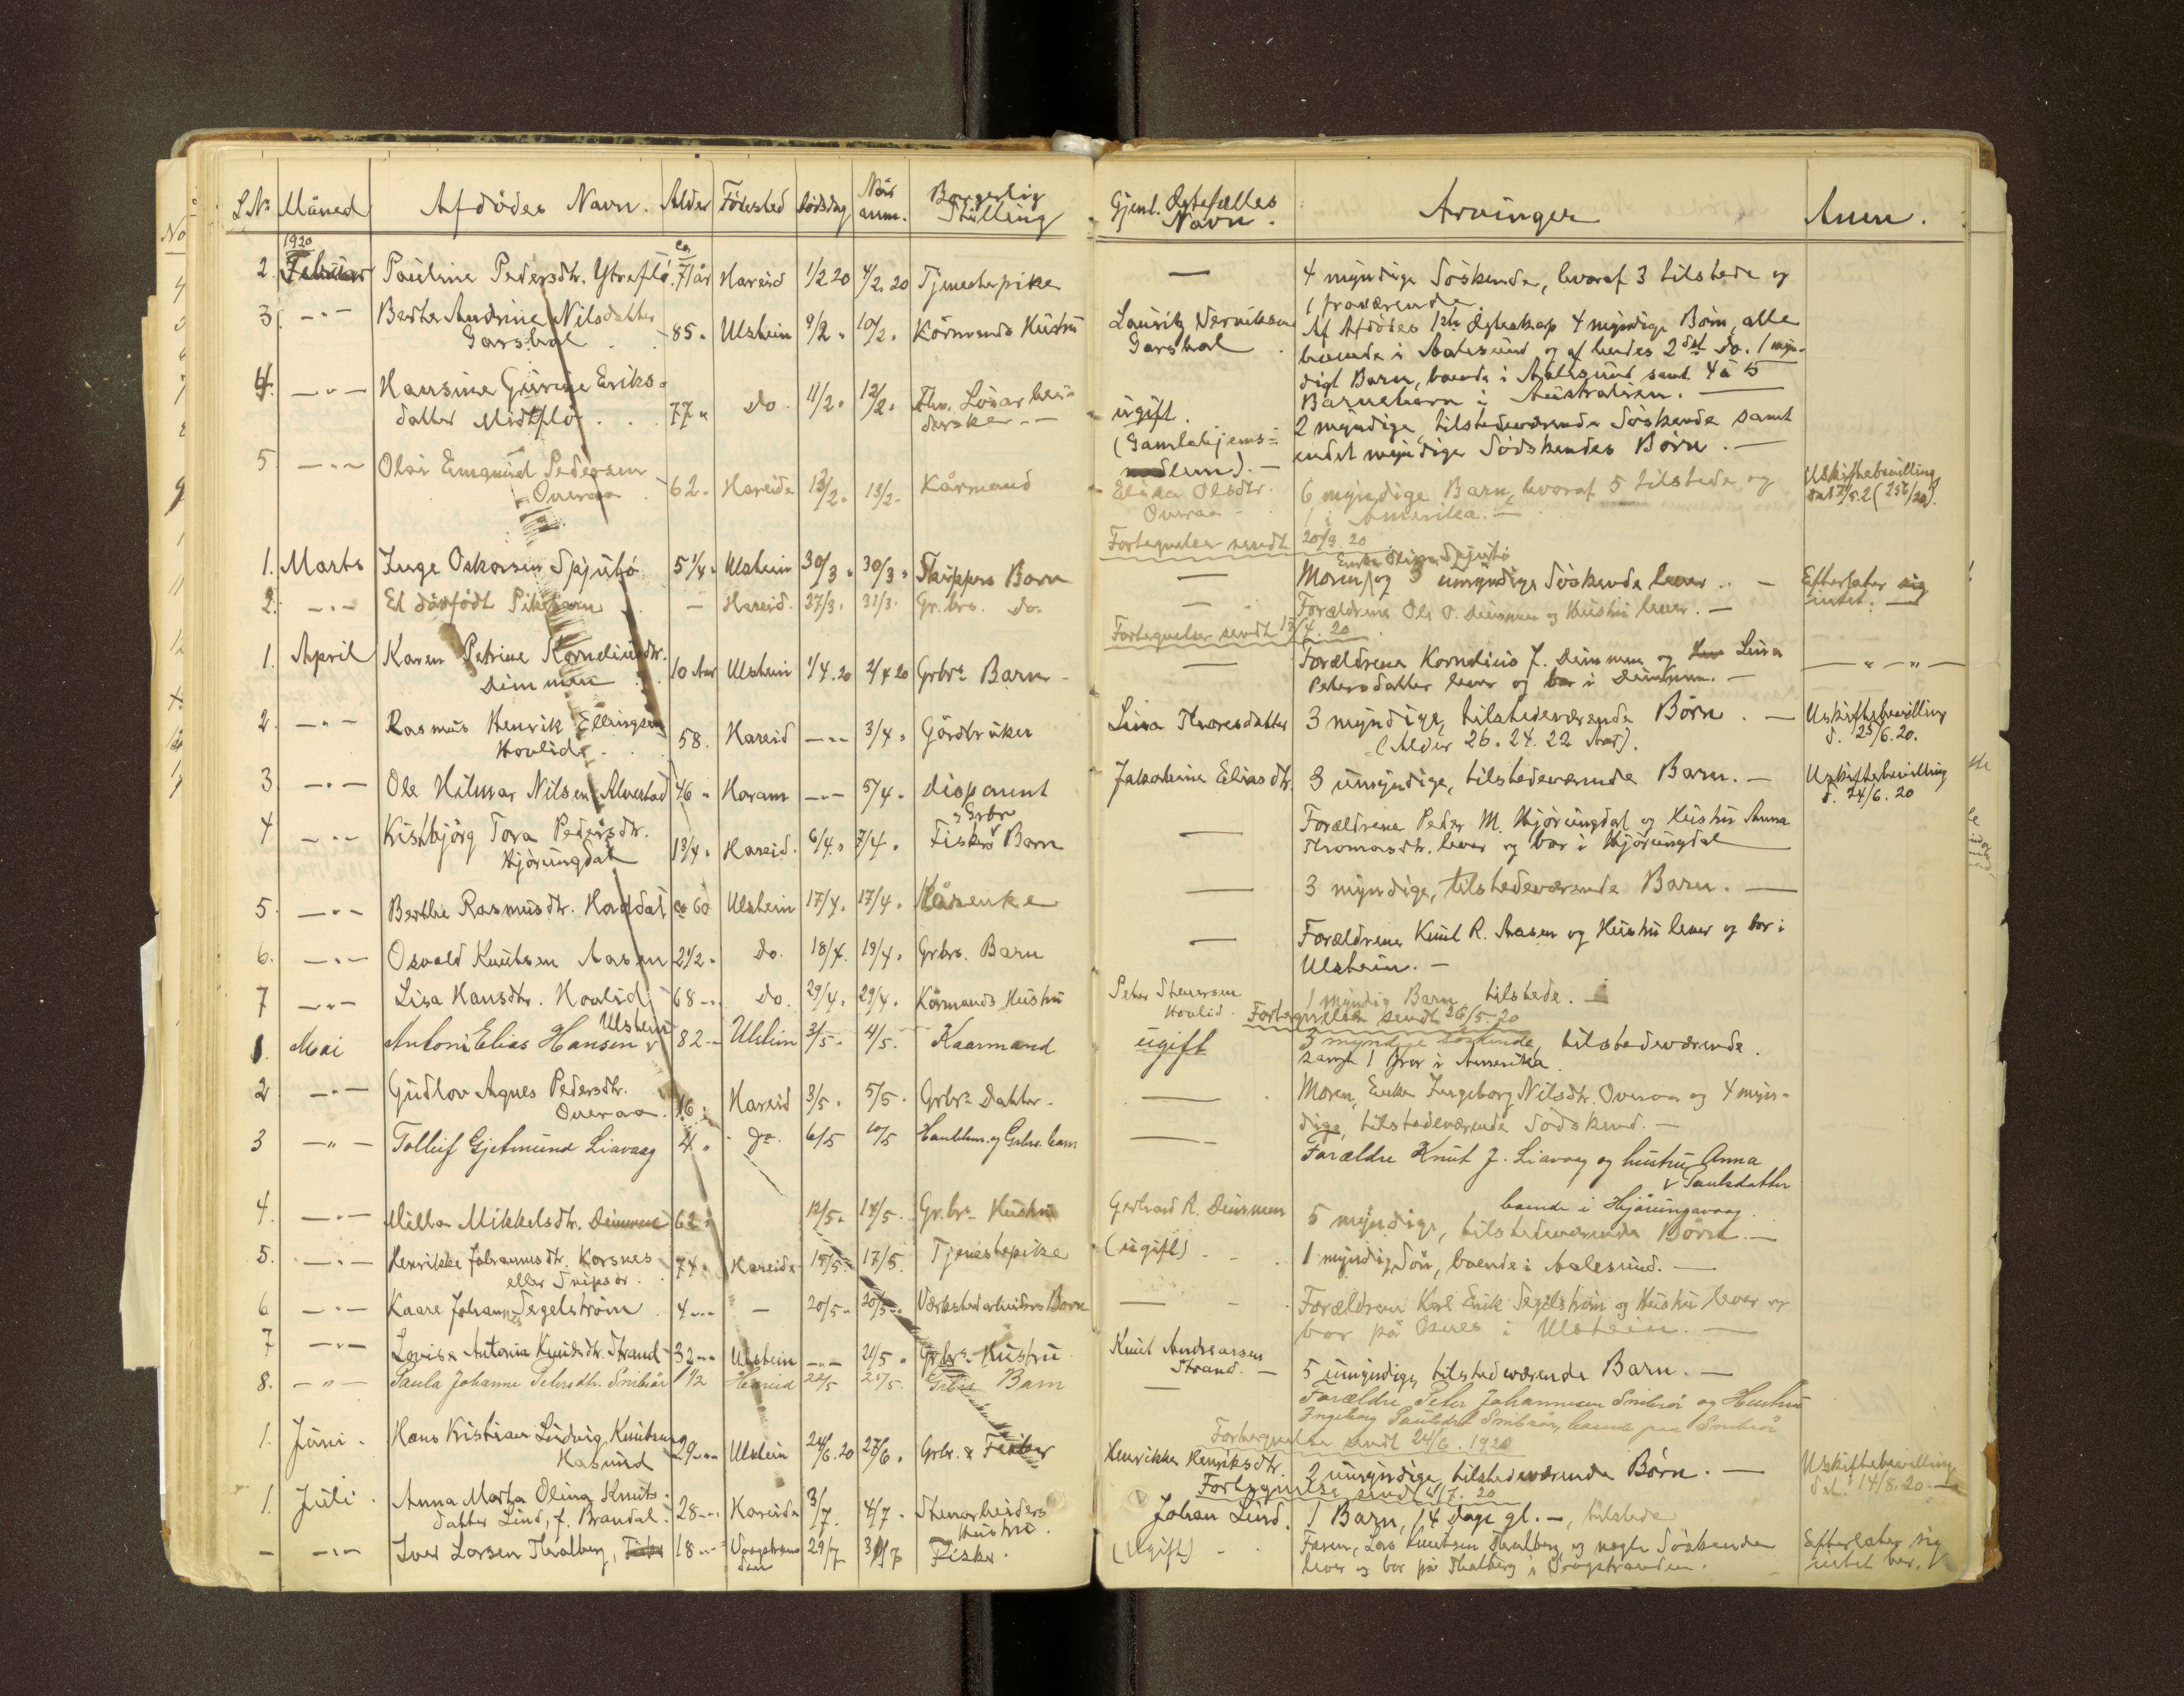 L.No Måned Afdödes Navn. Alder Födested Dödsdag Når anm. Borgerlig Stilling Gjenl. Ægtefælles Navn. Arvinger Anm.
1920
2. Februar Pauline Pedersdtr. Ytreflö. ca. 71 år Hareid 1/2 20 4/2. 20 Tjenestepike — 4 myndige Söskende, hvoraf 3 tilstede og
1 fraværende.
3. -"- Berthe Andrine Nilsdatter
Garshol 85" Ulstein 9/2 " 10/2 " Kårmands Hustru Lauritz Garshol Af Afdödes 1ste Ægteskap 4 myndige Börn, alle
boende i Aalesund og af hendes 2det do. 1 myn-
digt Barn, boende i Aalesund samt 4 à 5
Barnebarn i Australien. —
4. -"- Hansine Gurine Eriks-
datter Midtflö 77" Do. 11/2 " 12/2 " Fhv. ugift.
(Gamlehjems-
lem). — 2 myndige tilstedeværende Söskende samt
endel myndige Södskendes Börn. —
5 -"- Olai Emanuel Pedersen
Overaa 62" Hareide 13/2 " 13/2 " Kårmand Elika Olsdtr.
Overaa 6 myndige Barn, hvoraf 5 tilstede og
1 i Amerika. — Uskiftebevilling
Fortegnelse sendt 20/3. 20
1. Marts Inge Oskarsen Spjutö 5 1/4 " Ulstein 30/3 " 30/3 " Skippers Barn — Moren, Enke Spjutö og 3 umyndige Söskende lever. — Efterlater sig
intet. —
2. -"- Et dödfödt Pikebarn — Hareid. 27/3. 31/3. Gr.brs. Do. — Forældrene Ole O. Dimmen og Hustru lever. —
Fortegnelse sendt 17/4. 20
1. April Karen Petrine Korneliusdtr.
Dimmen 10 Aar Ulstein 1/4. 20 2/4 20 Grbrs Barn — Forældrene Kornelius J. Dimmen og Lina
Petersdatter lever og bor i Dimmen. — — " — " —
2. -"- Rasmus Henrik Ellingsen
Hovlid 58. Hareid -"- 3/4 " Gårdbruker Lina Thoresdatter 3 myndige, tilstedeværende Börn. —
(Alder 26. 24. 22 Aar). Uskiftebevilling
d. 25/6. 20.
3. -"- Ole Hilmar Nilsen Alvestad 46 " Haram -"- 5/4 " Disponent Jakobine Eliasdtr. 3 umyndige, tilstedeværende Barn. — Uskiftebevilling
d. 24/6. 20
4 -"- Kristbjörg Tora Pedersdtr.
Hjörungdal 1 3/4 " Hareid. 6/4. " 7/4 " Fisker & Grbr Barn — Forældrene Peder M. Hjörungdal og Hustru Anna
Thomasdtr. lever og bor i Hjörungdal
5. -"- Berthe Rasmusdtr. Haddal ca 60 Ulstein 17/4. 17/4 " Kårenke — 3 myndige, tilstedeværende Barn. —
6. -"- Osvald Knutsen Aasen 2 1/2 " Do. 18/4. 19/4 " Grbrs. Barn — Forældrene Knut R. Aasen og Hustru lever og bor i
Ulstein. —
7 -"- Lisa Hansdtr. Hovlid 68 -"- Do. 29/4. 29/4. Kårmands Hustru Peter Steversen
Hovlid. 1 myndig Barn, tilstede. —
Fortegnelse sendt 26/5. 20
1. Mai Antoni Elias Hansen Ulstein 82 -"- Ulstein 3/5 " 4/5. Kaarmand ugift 3 myndige söskende, tilstedeværende.
samt 1 bror i Amerika.
2 -"- Gudlov Agnes Pedersdtr.
Overaa. 16 " Hareid 3/5 " 5/5 " Grbrs Datter. — Moren, Enke Ingeborg Nilsdtr. Overaa og 4 myn-
dige, tilstedeværende Södskend. —
3 -"- Tolleif Gjetmund Liavaag 4 " Do. 6/5 10/5 Grbr. barn — Forældre Knut J. Liavaag og hustru Anna
Paulsdatter
boende i Hjörungavaag.
4. -"- Milla Mikkelsdtr. Dimmen 62 " 12/5 " 14/5. Gr.brs Hustru Gerhard R. Dimmen 5 myndige, tilstedeværende Börn. —
5. -"- Henrikke Johannesdtr. Korsnes
eller 74 " Hareide 15/5 " 17/5. Tjenestepike (ugift) 1 myndig Sön, boende i Aalesund. —
6 -"- Kaare Johannes Segelström 4 -"- — 20/5 " 20/5 " Værkstedarbeiders Barn — Forældrene Karl Erik Segelström og Hustru lever og
bor på Osnes i Ulstein. —
7 -"- Lovise Antonia Knutsdtr. Strand 32 -"- Ulstein -"- 21/5 " Gr.brs Hustru Knut Andreassen
Strand. — 5 umyndige, tilstedeværende Barn. —
8. -"- Paula Johanne Petersdtr. Snibsör 1 1/2 Hareid 22/5 25/5. Grbrs Barn — Forældre Peter Johannesen Snibsör og Hustru
Ingeborg Paulsdtr. Snibsör, boende paa Snibsör
Fortegnelse sendt 24/6. 1920
1. Juni Hans Kristian Ludvig Knutsen
Hasund 29 -"- Ulstein 24/6. 20 27/6 " Grbr. & Fisker Henrikke Henriksdtr. 2 umyndige tilstedeværende Börn. — Uskiftebevilling
dat. 14/8. 20. —
Fortegnelse sendt /7. 20
1. Juli Anna Marta Olina Knuts-
datter Lind, f. Brandal. 28 -"- Hareide 3/7. 4/7 " Stenarbeiders
Hustru. Johan Lind. 1 Barn, 14 dage gl. —, tilstede
— -"- Iver Larsen Thalberg, 18 -"- Vaagstran-
den 29/7 31/7 Fisker. (Ugift) — Faren, Lars Knutsen Thalberg og nogle Söskende
lever og bor på Thalberg i Vaagstranden. Efterlater sig
intet her.